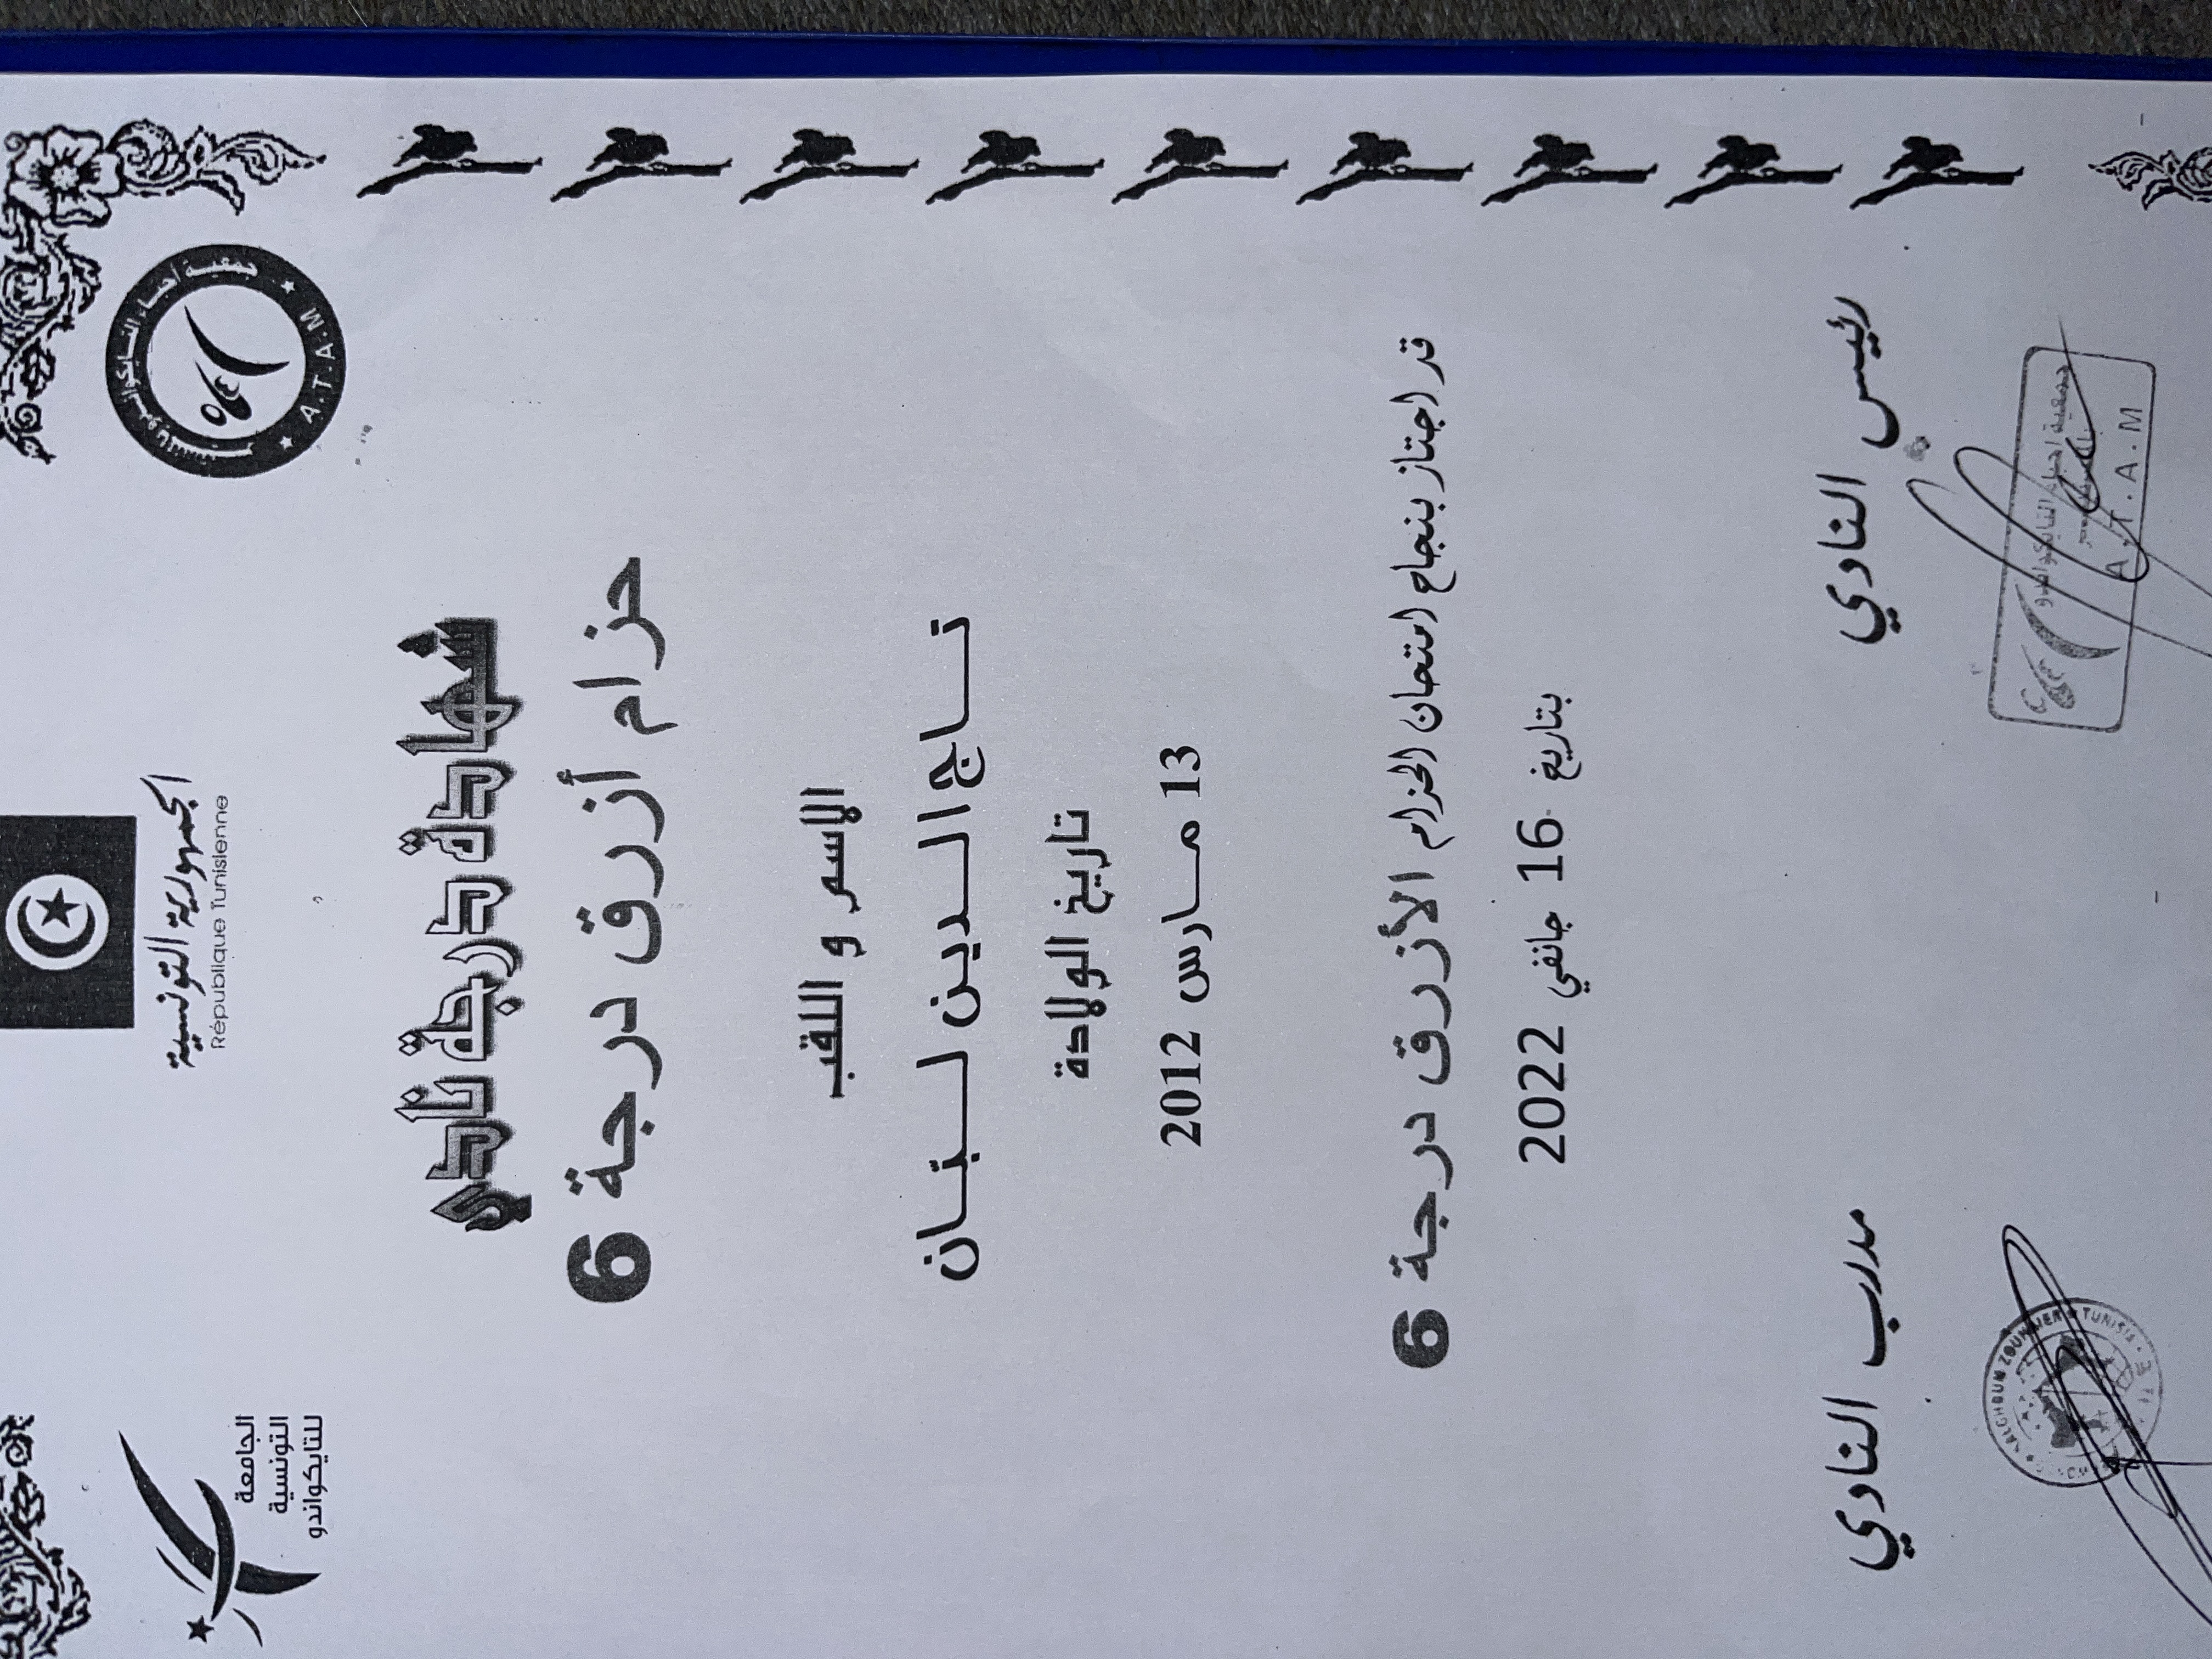 الجمهورية التونسية
République Tunisienne
جمعية أحباء التايكواندو
A.T.A.M
الجامعة
التونسية
للتايكواندو
شهادة درجة نادي
حزام أزرق درجة 6
الاسم و اللقب
تاج الدين لبان
تاريخ الولادة
13 مارس 2012
قد اجتاز بنجاح امتحان الحزام الأزرق درجة 6
بتاريخ 16 جانفي 2022
رئيس النادي
مدرب النادي
جمعية أحباء التايكواندو
A.T.A.M
TUNISIA